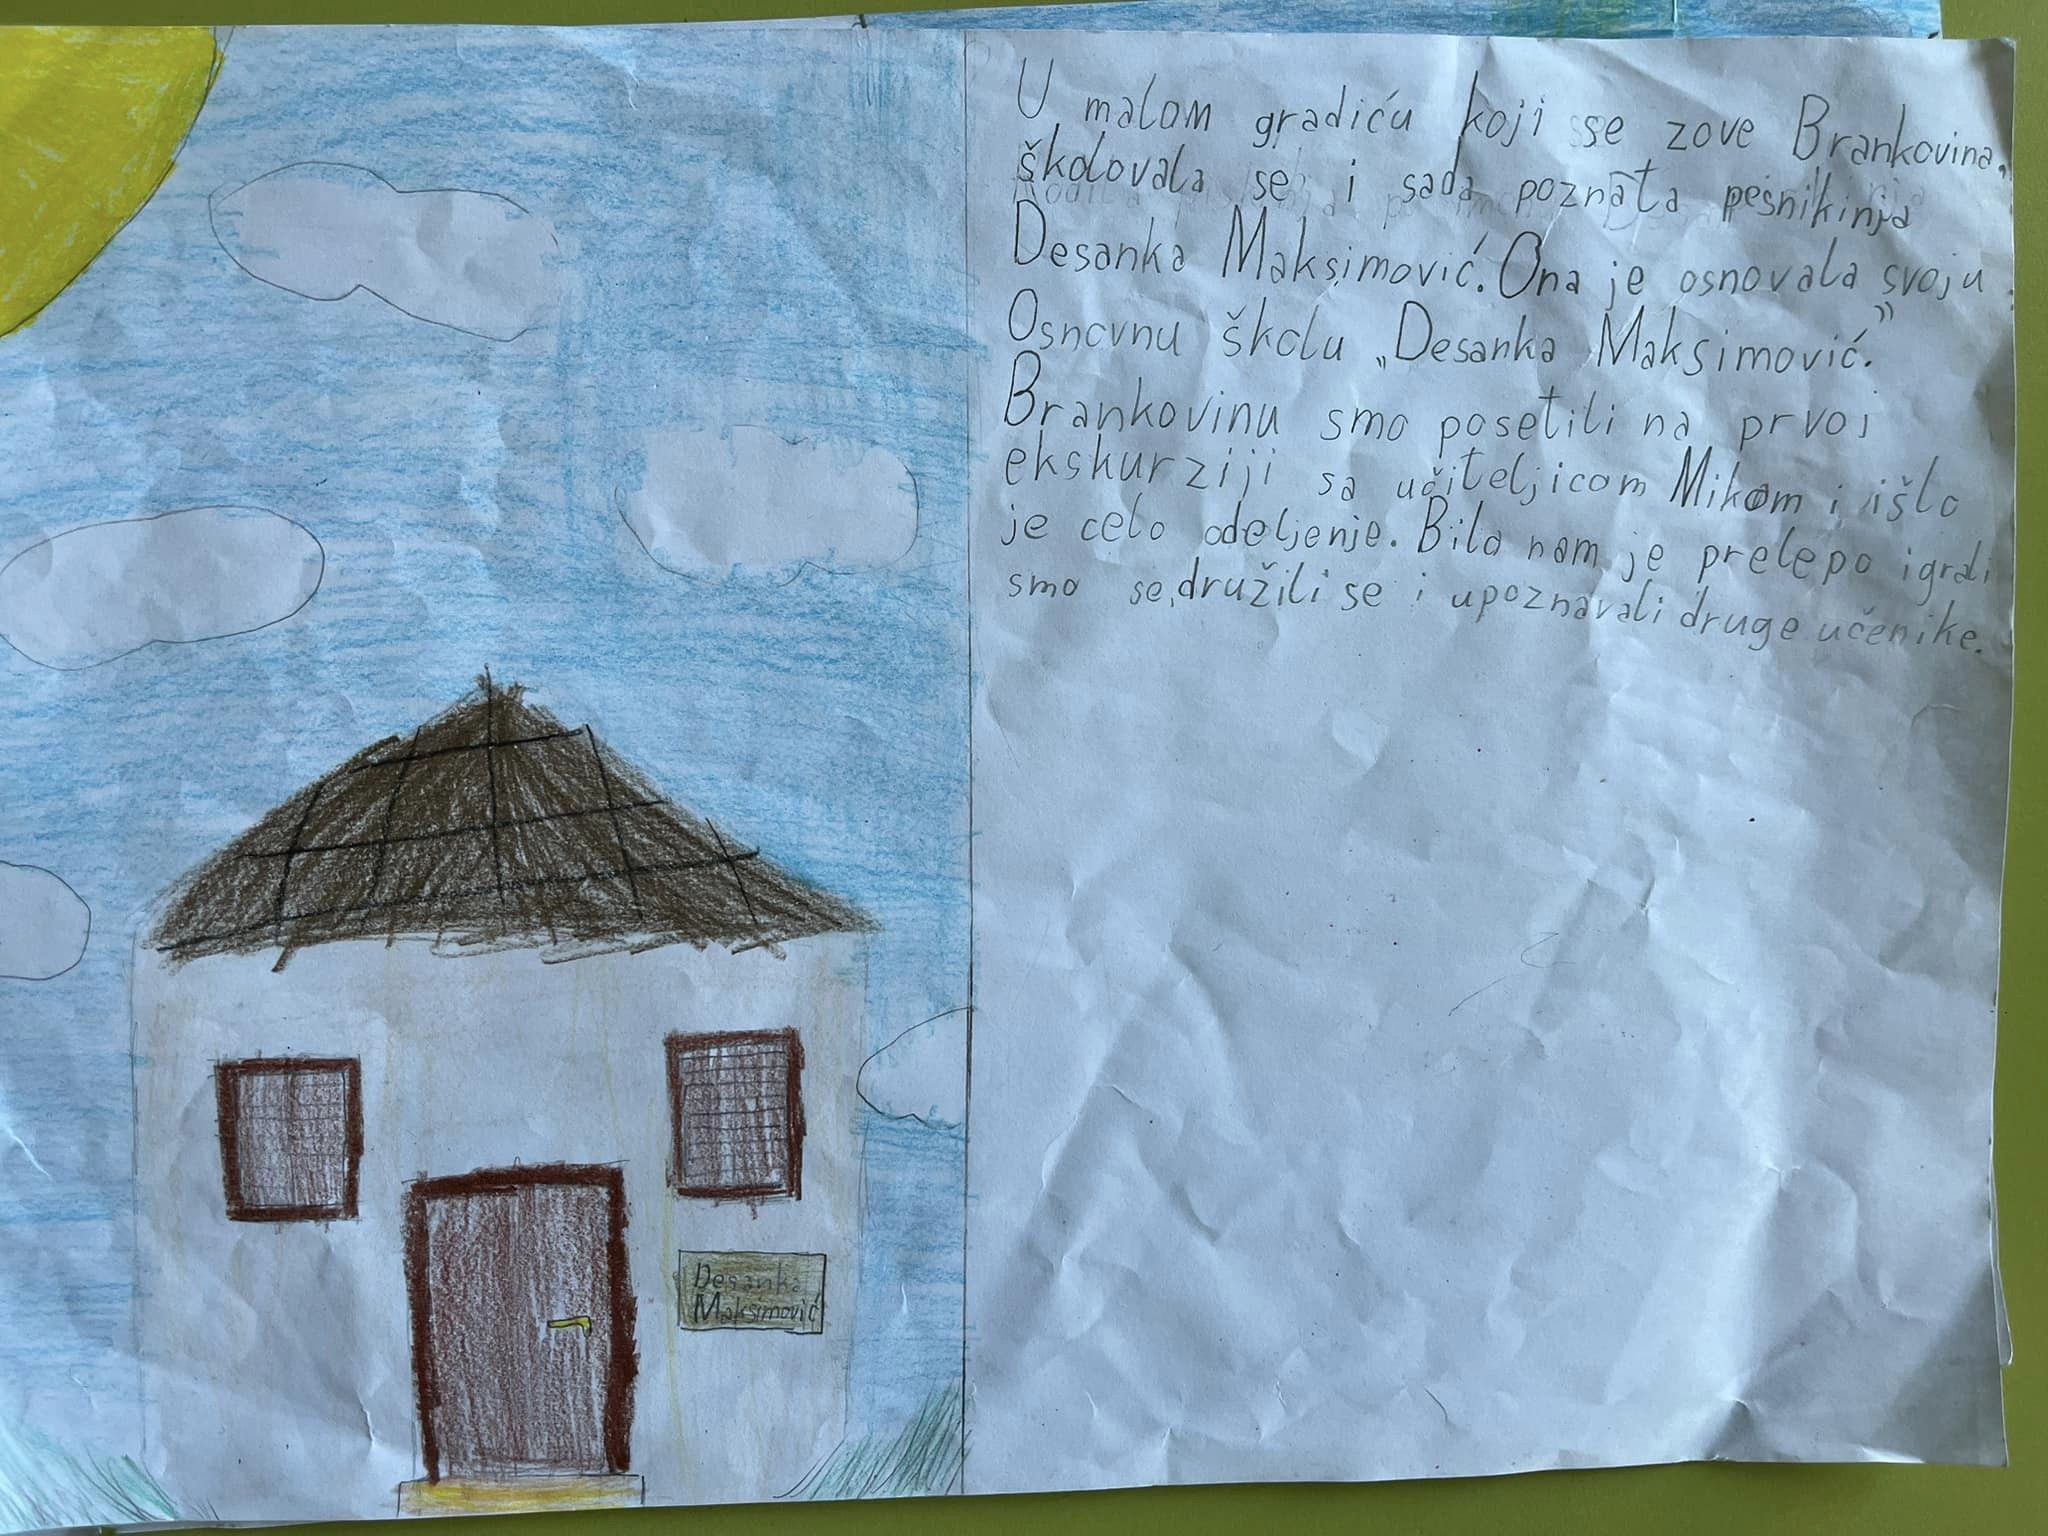 U malom gradiću koji se zove Brankovina.
školovala se i sada poznata pesnikinja
Desanka Maksimović. Ona je osnovala svoju
Osnovnu školu „Desanka Maksimović.”
Brankovinu smo posetili na prvoj
ekskurziji sa učiteljicom Mikom i išlo
je celo odeljenje. Bilo nam je prelepo igrali
smo se, družili se i upoznavali druge učenike.
Desanka
Maksimović